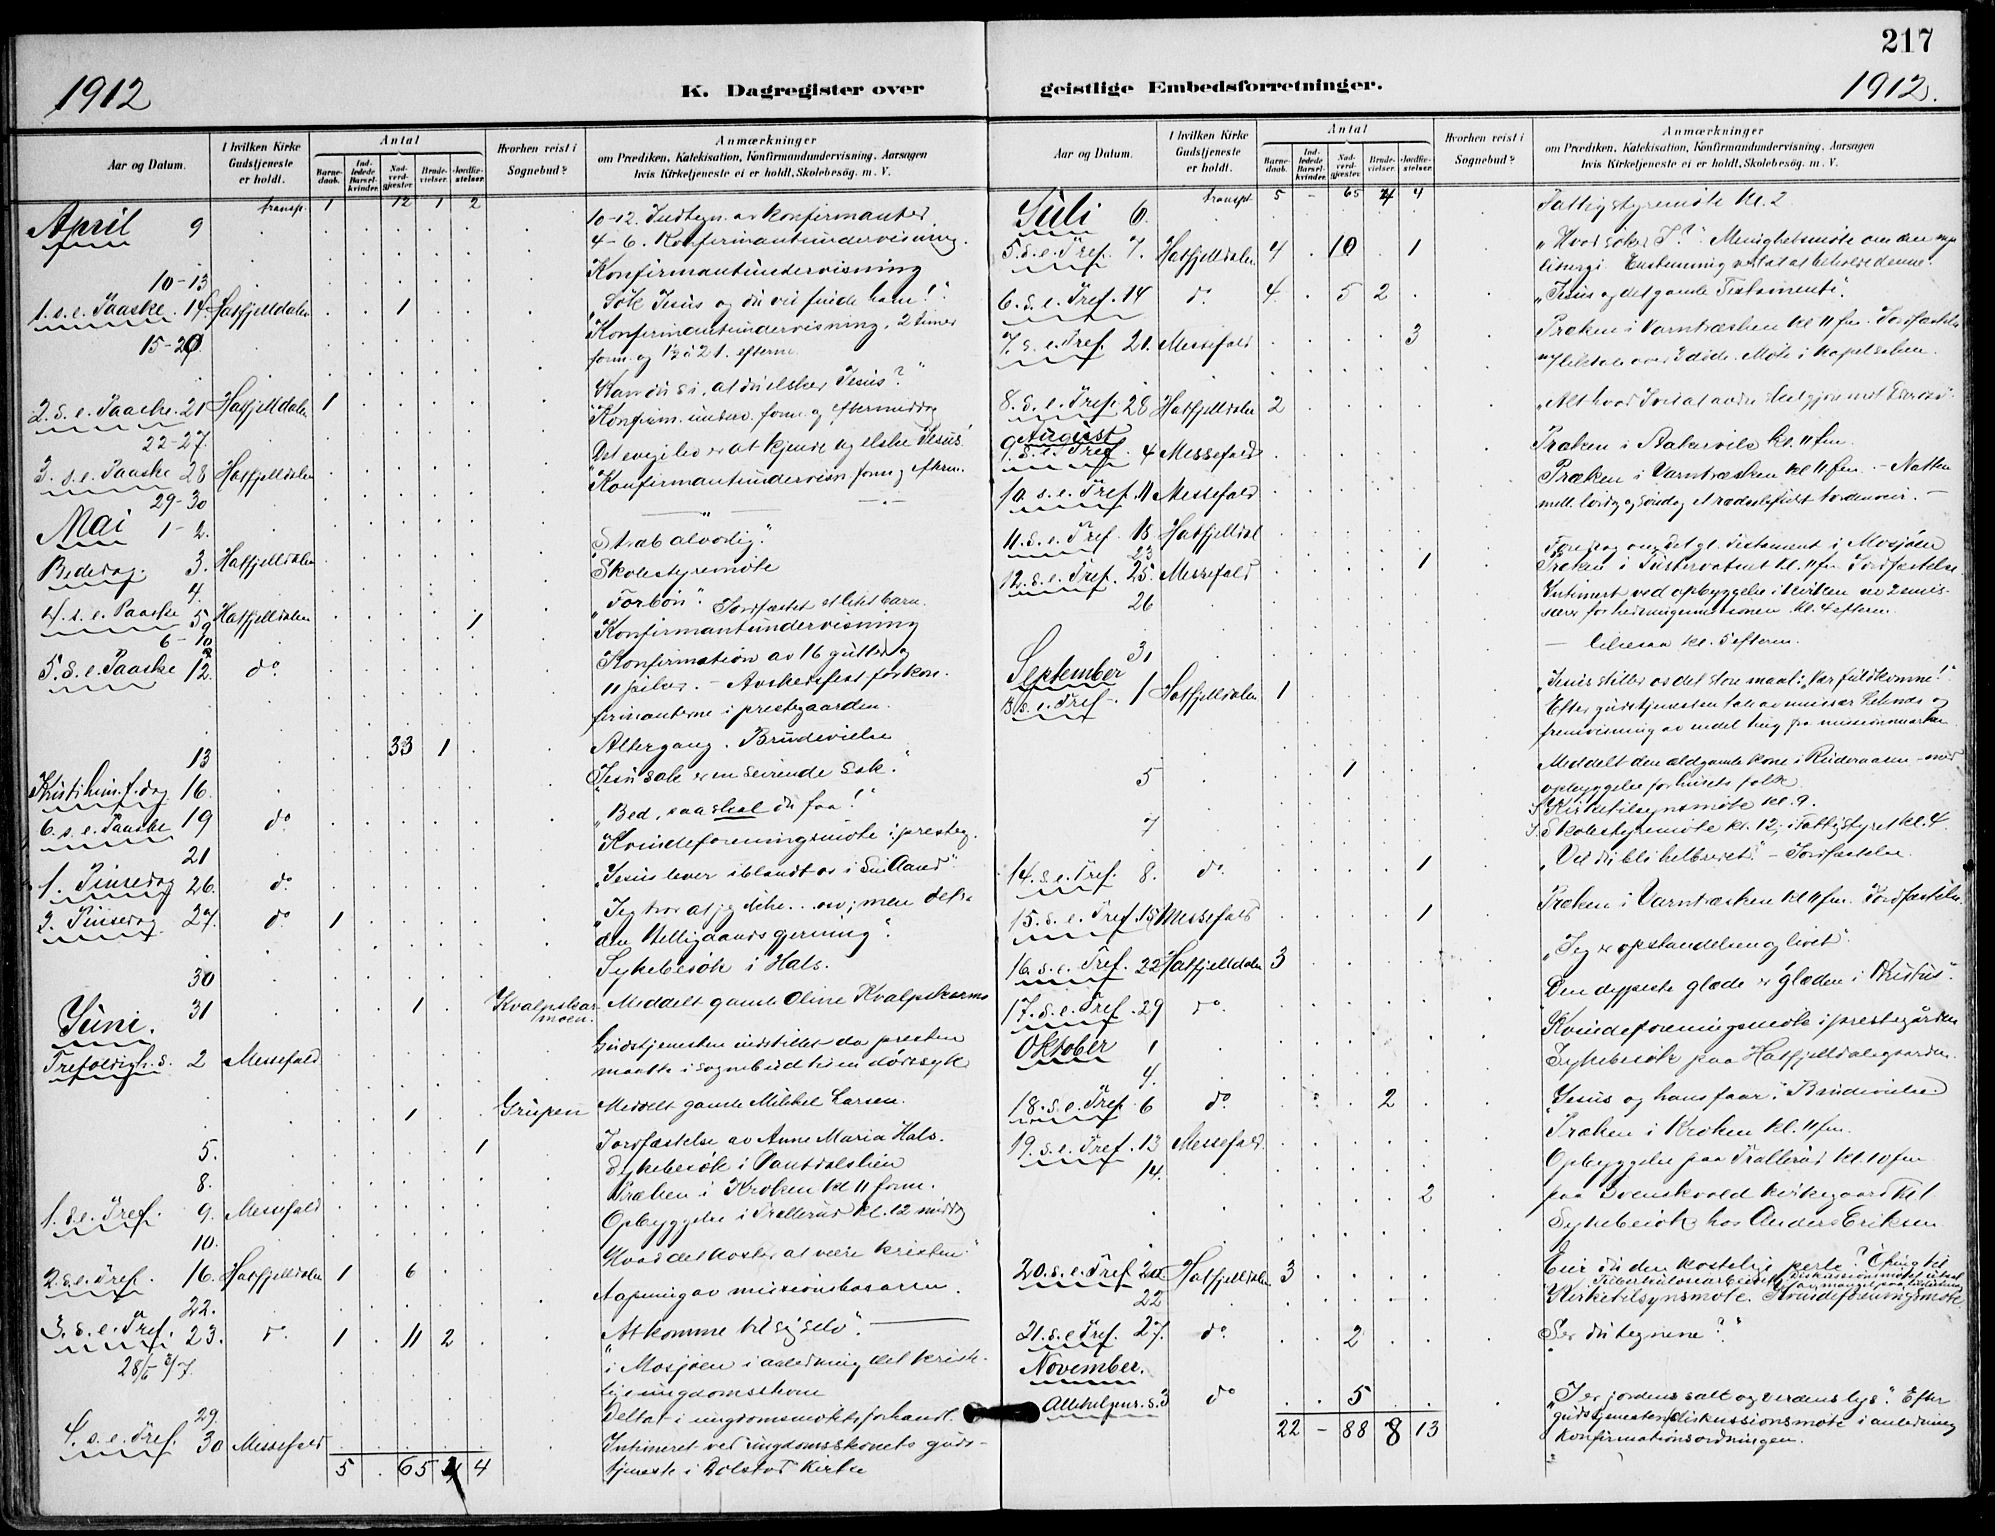 217
1912
K. Dagregister over
geistlige Embedsforretninger.
1912.
Aar og Datum.
I hvilken Kirke Gudstjeneste er holdt.
Antal
Barnedaab.
Indledede Barselkvinder.
Nadverdgjester.
Brudevielser.
Jordfæstelser.
Hvorhen reist i Sognebud?
Anmærkninger
om Prædiken, Katekisation, Konfirmandundervisning, Aarsagen
hvis Kirketjeneste ei er holdt, Skolebesög. m. V.
transp. 1 12 1 2
April 9 10-12. Indtegn. av konfirmanter
4-6. Konfirmantundervisning.
10-13 Konfirmantundervisning
1. s. e. Paaske. 14 Hatfjelldalen 1 "Søk Jesus og du vil finde ham!"
15-20. Konfirmantundervisning. 2 timer
form. og 1½ à 2 t. efterm.
2. s. e. Paaske. 21 Hatfjelldalen 1 "Kan du si, at du elsker Jesus?"
22-27. Konfirm. underv. form. og eftermiddag
3. s. e. Paaske 28 Hatfjelldalen Det evige liv er at kjende og elske Jesus.
29-30 Konfirmantundervisn. form. og efterm.
Mai 1-2.
Bededag. 3. Hatfjelldalen "Stræb alvorlig".
4. Skolestyremøte
4. s. e. Paaske 5 Hatfjelldalen 1 "Forbøn". Jordfæstet et litet barn.
6-10 Konfirmantundervisning
5. s. e. Paaske 12. do Konfirmation av 16 gutter og
11 piker. - Avskedsfest for kon-
firmanterne i prestegaarden.
13 33 1 Altergang. Brudevielse
Kristi him. f. dag 16. "Jesu sak er en seirende sak."
6. s. e. Paaske 19 do "Bed, saa skal du faa!"
21 Kvindeforeningsmøte i presteg.
1. Pinsedag 26. do "Jesus lever iblandt os i Sin Aand"
2. Pinsedag 27. do 1 "Jeg tror at jeg ikke ... ; men det er
den Helligaands gjerning".
30 Sykebesøk i Hals.
31 1 Kvalpskarmoen. Meddelt gamle Oline Kvalpskarmo
Juni.
Trefoldigh. s. 2 Messefald Gudstjenesten indstillet da presten
maatte i sognebud til en dødssyk
1 Grupen Meddelt gamle Mikkel Larsen.
5. 1 Jordfæstelse av Anne Maria Hals.
8. Sykebesøk i
1. s. e. Tref. 9. Messefald Præken i Kroken kl 11 form.
10. Opbyggelse i Trallerud kl. 12 middag
2. s. e. Tref. 16. Hatfjelldalen 1 6 Hvad det koster at være kristen."
22. Aapning av missionsbasaren.
3. s. e. Tref. 23. do 1 11 2 "At komme til sig selv".
28/6 3/7 i Mosjøen i anledning det krist-
lige ungdomsstevne
29. Deltat i ungdomsmøtets forhandl.
4. s. e. Tref. 30 Messefald Intimeret ved ungdomsstevnets guds-
tjeneste i Dolstad kirke
5 65 4 4
Aar og Datum.
I hvilken Kirke Gudstjeneste er holdt.
Antal
Barnedaab.
Indledede Barselkvinder.
Nadverdgjester.
Brudevielser.
Jordfæstelser.
Hvorhen reist i Sognebud?
Anmærkninger
om Prædiken, Katekisation, Konfirmandundervisning, Aarsagen
hvis Kirketjeneste ei er holdt, Skolebesög. m. V.
transpt. 5 - 65 4 4
Juli 6. Fattigstyremøte kl. 2
5. s. e. Tref. 7. Hatfjelldalen 4 10 1 "Hvad søker I?" Menighetsmøte om den nye
liturgi. Enstemmig vedtat at beholde denne.
6. s. e. Tref. 14 do 4 5 2 "Jesus og det gamle Testamente".
7. s. e. Tref. 21. Messefald 3 Præken i Varntræsken kl 11 fm. Jordfæstelse
over 3 døde. Møte i kapelsaken.
8. s. e. Tref. 28 Hatfjelldalen 2
August
9. s. e. Tref. 4 Messefald Præken i Stakarvik kl. 11 fm.
10. s. e. Tref. 11 Messefald Præken i Varntræsken kl 11 fm. - Natten
mell. lørdag og søndag et rædselsfuldt tordenveir. -
11. s. e. Tref. 18 Hatfjelldal
23 Foredrag om det gl. Testament i Mosjøen
12. s. e. Tref. 25. Messefald 1 Præken i Tustervatnet kl. 11 fm. Jordfæstelse
26 Intimert ved opbyggelse i kirken av 2 emis-
særer for hedningemissionen kl. 4 efterm.
31 kl. 5 efterm.
September
13. s. e. Tref. 1 Hatfjelldalen 1 "Jesus stiller os det store maal: Vær fuldkomne!"
Efter gudstjenesten tale av missær og
fremvisning av endel ting fra missionsmarken
5 1 Meddelt den ældgamle kone i - med
opbyggelse for husets folk
7 Kirketilsynsmøte kl. 9.
Skolestyremøte kl. 12; i Fattigstyret kl. 4.
14. s. e. Tref. 8. do 1 "Vil du bli helbredet?" - Jordfæstelse.
15. s. e. Tref. 15 Messefald 1 Præken i Varntræsken kl 11 fm. Jordfæstelse
16. s. e. Tref. 22 Hatfjelldalen 3 "Jeg er opstandelsen og livet".
17. s. e. Tref. 29 do Den dypeste glæde er glæden i Kristus".
Oktober 1 Kvindeforeningsmøte i prestegården
4. Sykebesøk paa Hatfjelldalsgaarden.
18. s. e. Tref. 6 do 2 "Jesus og hans faar". Brudevielse
19. s. e. Tref. 13 Messefald. Præken i Kroken kl. 11 fm.
14. Opbyggelse paa Trallerud kl. 10 fm.
2 paa Svenskvold kirkegaard kl 1
Sykebesøk hos Anders Eriksen
20. s. e. Tref. 20 Hatfjelldalen 3 Eier du den kostelige perle?
22 Kirketilsynsmøte. Kvindeforeningsmøte
21. s. e. Tref. 27. do 2 "Ser du tegnene?"
November.
Allehelgens. s. 3 do 5 "I er jordens salt og verdens lys". Efter
gudstjenesten diskussionsmøte i anledning
konfirmationsordningen.
22 - 88 8 13